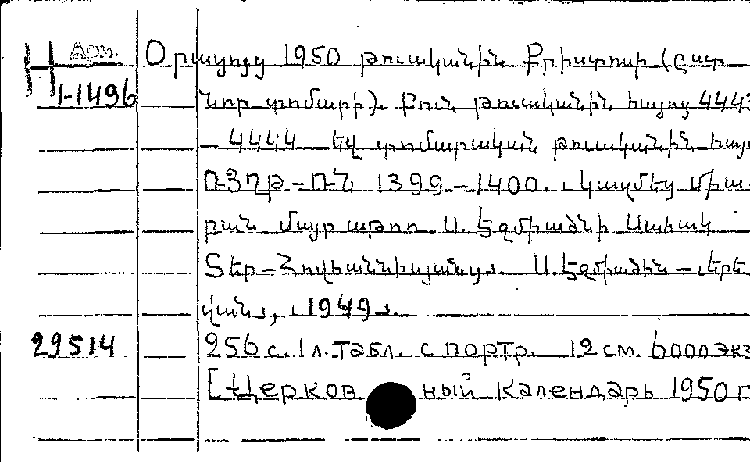 Арм. Օրացոյց 1950 թուականին Քրիստոսի (ըստ
Н 1-1496 նոր տոմարի)։ Բուն թուականին հայոց 4443
– 4444 եվ տոմարական թուականին հայո
ՌՅՂԹ–ՌՆ 1399–1400. Կազմեց միա-
բան մայր աթոռ Ս. Էջմիածնի Սահակ
Տեր-Հովհաննիսյանց։ Ս. Էջմիածին – Երե
վան, 1949։
29514 256 с. 1 л. табл. с портр. 12 см. 6000 экз
[Церковный календарь 1950 г